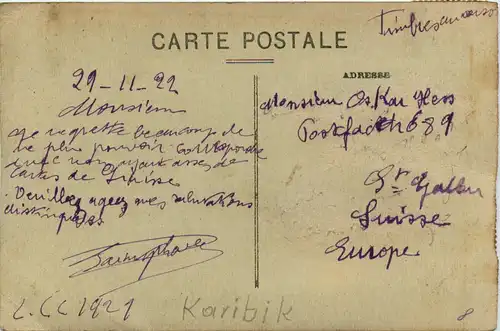 Timbres au verso
CARTE POSTALE
ADRESSE
29-11-22
Monsieur
Je regrette beaucoup de
ne plus pouvoir correspondre
avec vous, ayant assez de
cartes de Suisse.
Veuillez agréez mes salutations
distinguées
Monsieur Oskar Hess
Postfach 689
St Gallen
Suisse
Europe
1921
Karibik
8